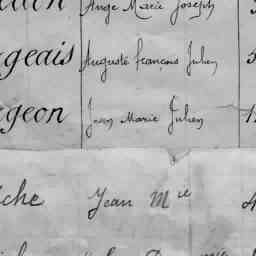 Ange Marie Joseph
geais Auguste françois Julien 5
geon Jean Marie Julien 1
che Jean Mie 4